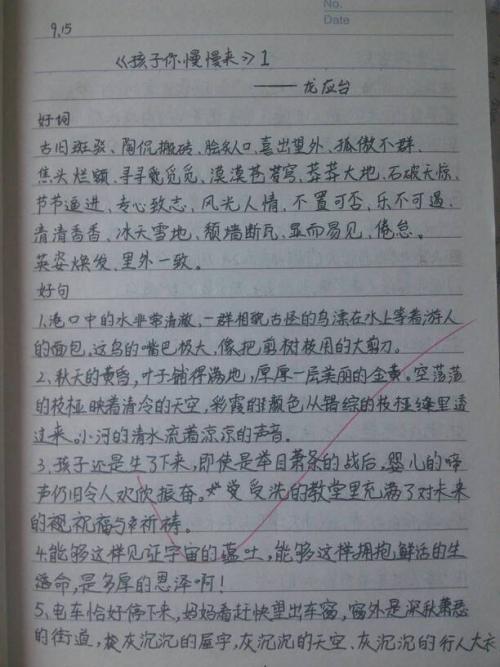 No.
Date
9.15
《孩子你慢慢来》1
——龙应台
好词
古旧斑驳、陶侃搬砖、脍炙人口、喜出望外、孤傲不群、
焦头烂额、寻寻觅觅、漠漠苍穹、莽莽大地、石破天惊、
节节逼进、专心致志、风光人情、不置可否、乐不可遏、
清清香香、冰天雪地、颓墙断瓦、显而易见、倦怠。
英姿焕发、里外一致。
好句
1、港口中的水非常清澈,一群相貌古怪的鸟漂在水上等着游人
的面包,这鸟的嘴巴极大,像把剪树枝用的大剪刀。
2、秋天的黄昏,叶子铺得满地,厚厚一层美丽的金黄。空荡荡
的枝桠映着清冷的天空,彩霞的颜色从错综的枝桠缝里透
过来。小河的清水流着凉凉的声音。
3、孩子还是生了下来,即使是举目萧条的战后,婴儿的啼
声仍旧令人欢欣振奋。受洗的教堂里充满了对未来
的祝福与祈祷。
4、能够这样见证宇宙的蕴吐,能够这样拥抱鲜活的生
命,是多厚的恩泽啊!
5、电车恰好停下来,妈妈看赶快望出车窗,窗外是深秋萧瑟
的街道,灰沉沉的屋宇,灰沉沉的天空、灰沉沉的行人大衣